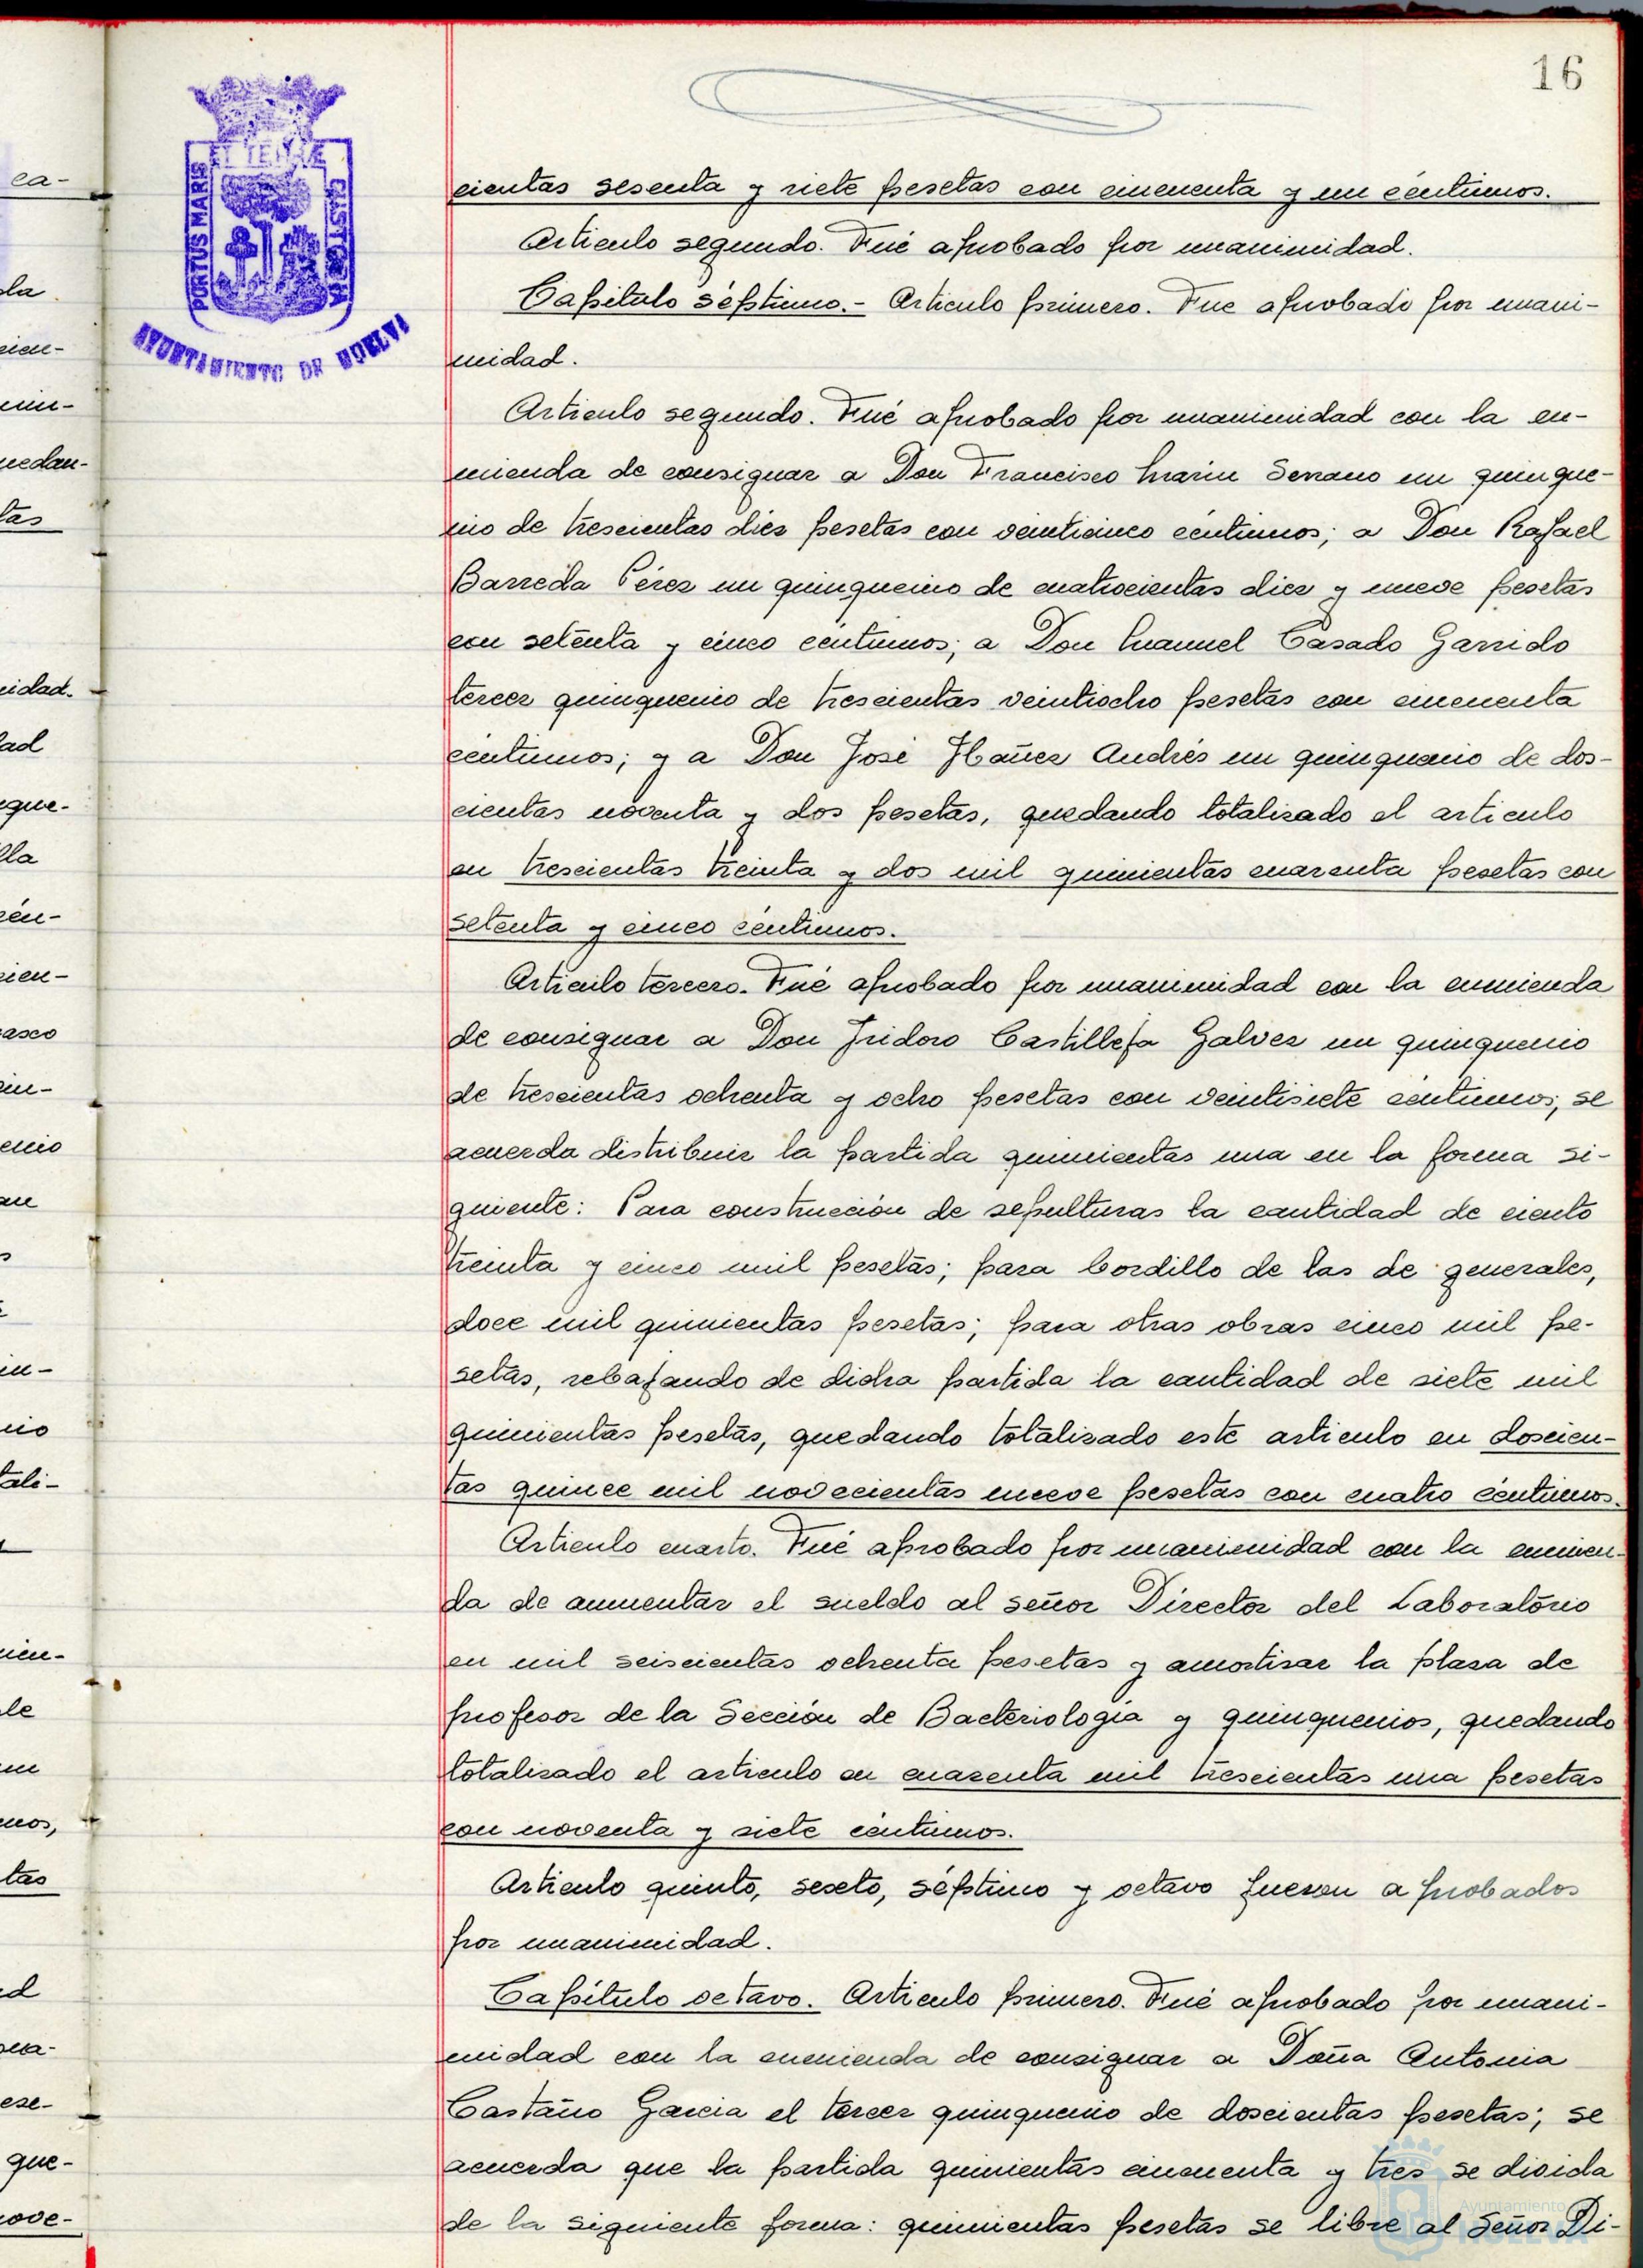 16
ET TERRÆ
PORTUS MARIS
CUSTODIA
AYUNTAMIENTO DE HUELVA
cientas sesenta y siete pesetas con cincuenta y un céntimos.
Artículo segundo. Fué aprobado por unanimidad.
Capítulo séptimo.- Artículo primero. Fue aprobado por unani-
midad.
Artículo segundo. Fué aprobado por unanimidad con la en-
mienda de consignar a Don Francisco Marin Serrano un quinque-
nio de trescientas diez pesetas con veinticinco céntimos; a Don Rafael
Barreda Pérez un quinquenio de cuatrocientas diez y nueve pesetas
con setenta y cinco céntimos; a Don Manuel Casado Garrido
tercer quinquenio de trescientas veintiocho pesetas con cincuenta
céntimos; y a Don José Ibañez Andrés un quinquenio de dos-
cientas noventa y dos pesetas, quedando totalizado el artículo
en trescientas treinta y dos mil quinientas cuarenta pesetas con
setenta y cinco céntimos.
Artículo tercero. Fué aprobado por unanimidad con la enmienda
de consignar a Don Isidoro Castilleja Galvez un quinquenio
de trescientas ochenta y ocho pesetas con veintisiete céntimos; se
acuerda distribuir la partida quinientas una en la forma si-
guiente: Para construcción de sepulturas la cantidad de ciento
treinta y cinco mil pesetas; para bordillo de las de generales,
doce mil quinientas pesetas; para otras obras cinco mil pe-
setas, rebajando de dicha partida la cantidad de siete mil
quinientas pesetas, quedando totalizado este artículo en doscien-
tas quince mil novecientas nueve pesetas con cuatro céntimos.
Artículo cuarto. Fué aprobado por unanimidad con la enmien-
da de aumentar el sueldo al señor Director del Laboratorio
en mil seiscientas ochenta pesetas y amortizar la plaza de
profesor de la Sección de Bacteriología y quinquenios, quedando
totalizado el artículo en cuarenta mil trescientas una pesetas
con noventa y siete céntimos.
Artículo quinto, sexto, séptimo y octavo fueron aprobados
por unanimidad.
Capítulo octavo. Artículo primero. Fué aprobado por unani-
midad con la enmienda de consignar a Doña Antonia
Castaño Garcia el tercer quinquenio de doscientas pesetas; se
acuerda que la partida quinientas cincuenta y tres se divida
de la siguiente forma: quinientas pesetas se libre al Señor Di-